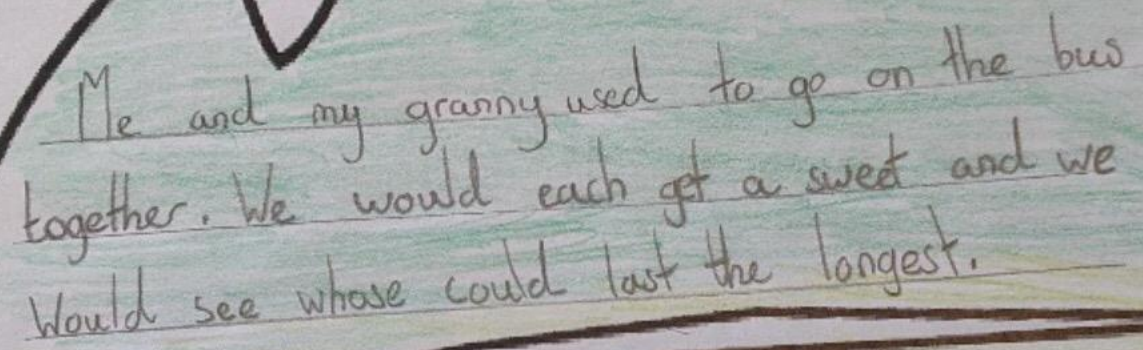 Me and my granny used to go on the bus
together. We would each get a sweet and we
Would see whose could last the longest.